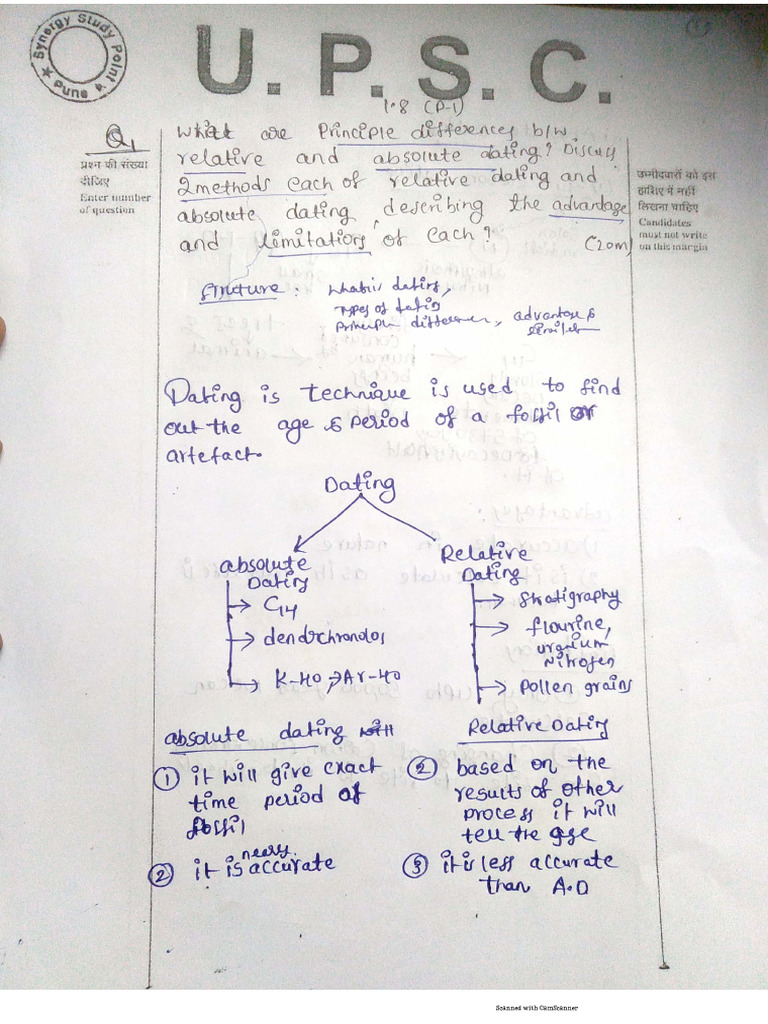 Synergy Study Point
Pune
U. P. S. C.
1.8 (P-1)
Q1
प्रश्न की संख्या
दीजिए
Enter number
of question
What are Principle differences b/w
relative and absolute dating? Discuss
2 methods each of relative dating and
absolute dating, describing the advantage
and limitations of each?
(20m)
उम्मीदवारों को इस
हाशिए में नहीं
लिखना चाहिए
Candidates
must not write
on this margin
Struture: What is dating,
Types of datin
Principle difference, advantage &
Dating is technique is used to find
out the age & period of a fossil or
artefact.
Dating
absolute
Dating
C14
dendrochronolos
K-40, Ar-40
Relative
Dating
Stratigraphy
flourine,
uranium
Nitrogen
Pollen grains
absolute dating
Relative Dating
① it will give exact
time period of
fossil
② it is neerly accurate
② based on the
results of other
process it will
tell the age
③ it is less accurate
than A.D
Scanned with CamScanner